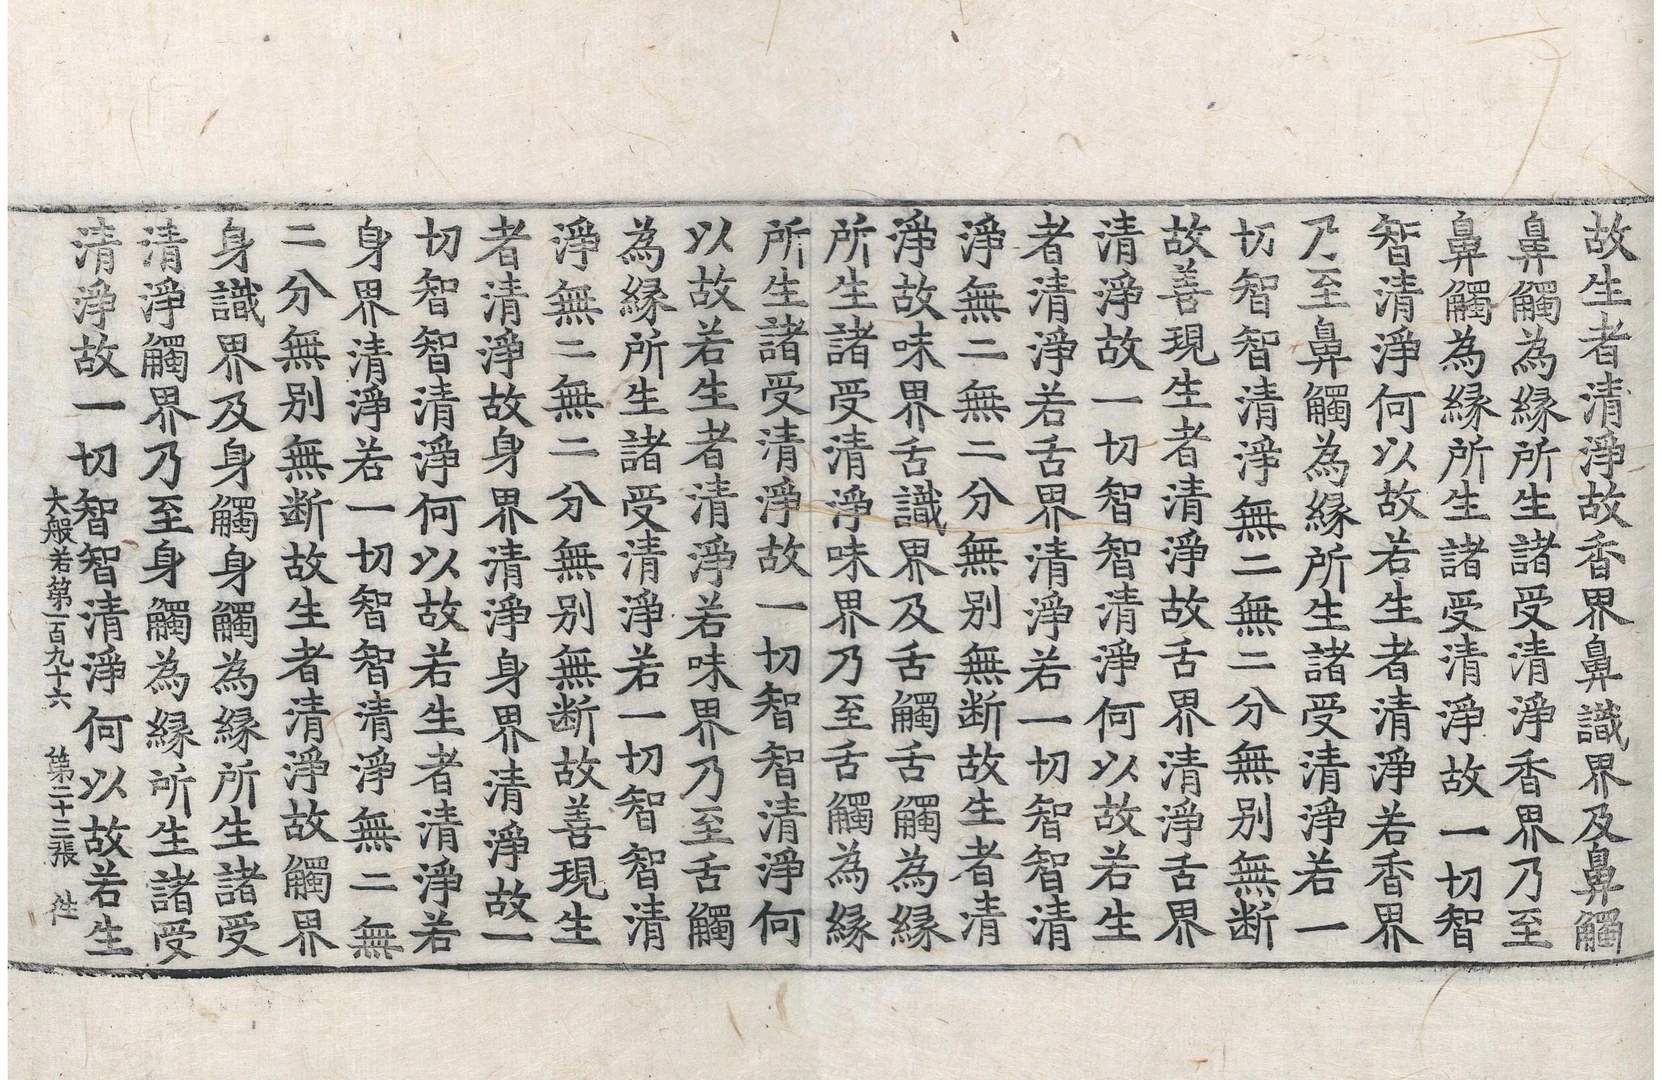 故生者清淨故香界鼻識界及鼻觸
鼻觸為縁所生諸受清淨香界乃至
鼻觸為縁所生諸受清淨故一切智
智清淨何以故若生者清淨若香界
乃至鼻觸為縁所生諸受清淨若一
切智智清淨無二無二分無别無断
故善現生者清淨故舌界清淨舌界
清淨故一切智智清淨何以故若生
者清淨若舌界清淨若一切智智清
淨無二無二分無别無断故生者清
淨故味界舌識界及舌觸舌觸為縁
所生諸受清淨味界乃至舌觸為縁
所生諸受清淨故一切智智清淨何
以故若生者清淨若味界乃至舌觸
為縁所生諸受清淨若一切智智清
淨無二無二分無别無断故善現生
者清淨故身界清淨身界清淨故一
切智智清淨何以故若生者清淨若
身界清淨若一切智智清淨無二無
二分無别無断故生者清淨故觸界
身識界及身觸身觸為縁所生諸受
清淨觸界乃至身觸為縁所生諸受
清淨故一切智智清淨何以故若生
大般若第一百九十六　第二十三張　往